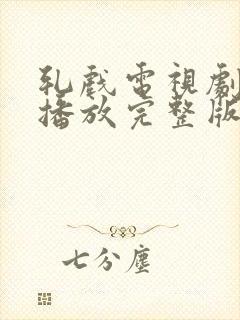 乳戲電視劇
播放完整版
七分塵